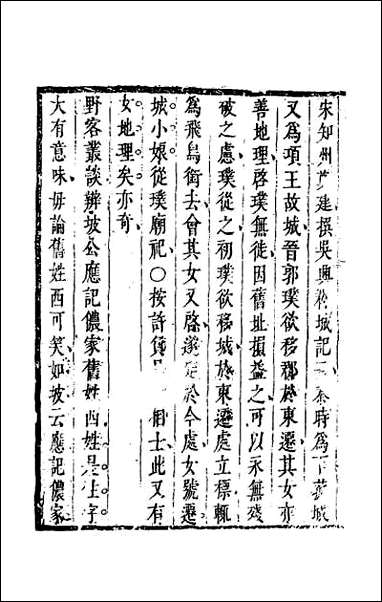 宋知州建撰吳興城記秦時爲下菰城
又爲項王故城晉郭璞欲移郡於東遷其女亦
善地理啓璞無徙因舊址損益之可以永無殘
破之慮璞從之初璞欲移城於東遷處立標輒
爲飛鳥銜去會其女又啓遂定於今處女號遷
城小娘從璞廟祀○按許負相士此又有
女地理矣亦奇
野客叢談辨坡公應記儂家舊姓西姓是住字
大有意味毋論舊姓西可笑如坡云應記儂家